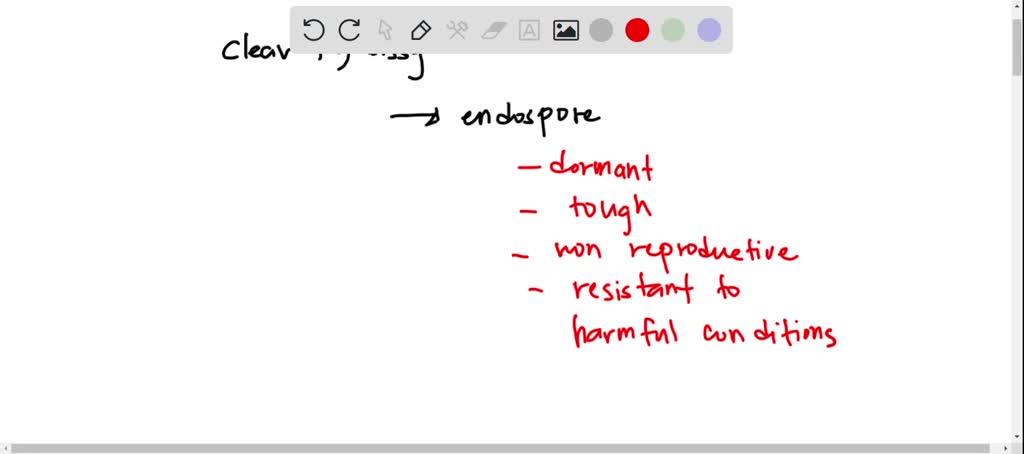 → endospore
- dormant
- tough
- non reproductive
- resistant to
harmful conditions